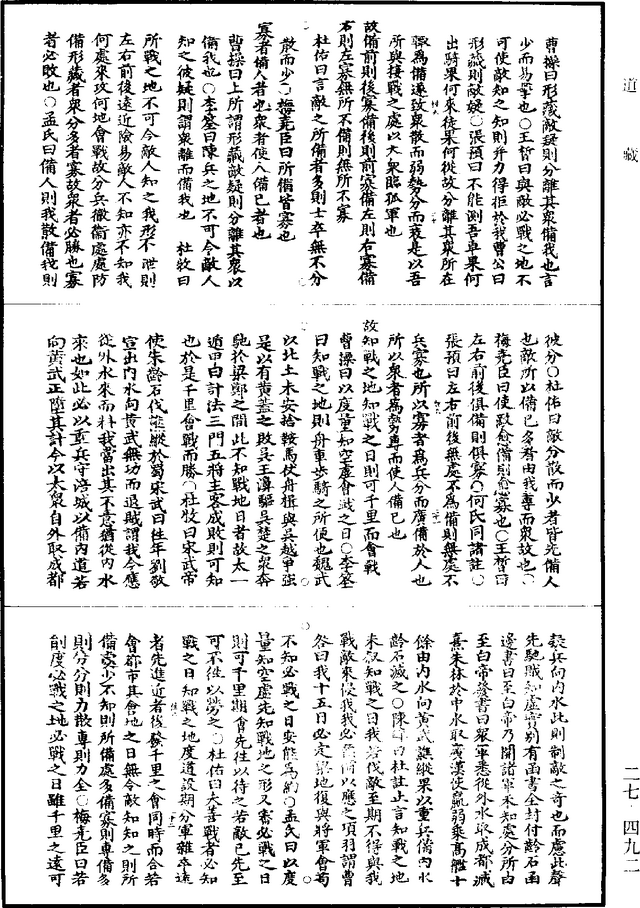 道 藏
曹操曰形藏敵疑則分離其衆備我也言
少而易擊也○王晳曰與敵必戰之地不
可使敵知之知則并力得拒於我曹公曰
形藏則敵疑○張預曰不能測吾車果何
出騎果何來徒果何從故分離其衆所在
輒爲備遂致衆散而弱勢分而衰是以吾
所與接戰之處以大衆臨孤軍也
故備前則後寡備後則前寡備左則右寡備
右則左寡無所不備則無所不寡
杜佑曰言敵之所備者多則士卒無不分
散而少○梅堯臣曰所備皆寡也
寡者備人者也衆者使人備己者也
曹操曰上所謂形藏敵疑則分離其衆以
備我也○李筌曰陳兵之地不可令敵人
知之彼疑則謂衆離而備我也 杜牧曰
所戰之地不可令敵人知之我形不泄則
左右前後遠近險易敵人不知亦不知我
何處來攻何地會戰故分兵徹衛處處防
備形藏者衆分多者寡故衆者必勝也寡
者必敗也○孟氏曰備人則我散備我則
彼分○杜佑曰敵分散而少者皆先備人
也敵所以備己多者由我專而衆故也○
梅堯臣曰使敵愈備則愈寡也○王晳曰
左右前後俱備則俱寡○何氏同諸註○
張預曰左右前後無處不爲備則無處不
兵寡也所以寡者爲兵分而廣備於人也
所以衆者爲勢專而使人備己也
故知戰之地知戰之日則可千里而會戰
曹操曰以度量知空虛會戰之日○李筌
曰知戰之地則舟車步騎之所便也魏武
以北土未安捨鞍馬仗舟楫與吳越爭強
是以有黃蓋之敗吳王濞驅吳楚之衆奔
馳於梁鄭之間此不知戰地日者故太一
遁甲曰計法三門五將主客成敗則可知
也於是千里會戰而勝○杜牧曰宋武帝
使朱齡石伐譙縱於蜀宋武曰往年劉敬
宣出内水向黃武無功而退賊謂我今應
從外水來而料我當出其不意猶從内水
來也如此必以重兵守涪城以備内道若
向黃武正墮其計今以大衆自外取成都
疑兵向内水此則制敵之奇也而慮此聲
先馳賊知虛實別有函書全封付齡石函
邊書曰至白帝乃開諸軍未知處分所由
至白帝發書曰衆軍悉從外水取成都臧
熹朱林於中水取廣漢使羸弱乘高艦十
餘由内水向黃武譙縱果以重兵備内水
齡石滅之○陳皥曰杜註止言知戰之地
未叙知戰之日我若伐敵至期不得與我
戰敵來侵我我必備以應之項羽謂曹
咎曰我十五日必定梁地復與將軍會苟
不知必戰之日安能爲約○孟氏曰以度
量知空虛先知戰地之形又審必戰之日
則可千里期會先往以待之若敵已先至
可不往以勞之○杜佑曰夫善戰者必知
戰之日知戰之地度道設期分軍雜卒遠
者先進近者後發千里之會同時而合若
會都市其會地之日無令敵知知之則所
備處少不知則所備處多備寡則專備多
則分分則力散專則力全○梅堯臣曰若
能度必戰之地必戰之日雖千里之遠可
二七·四九二